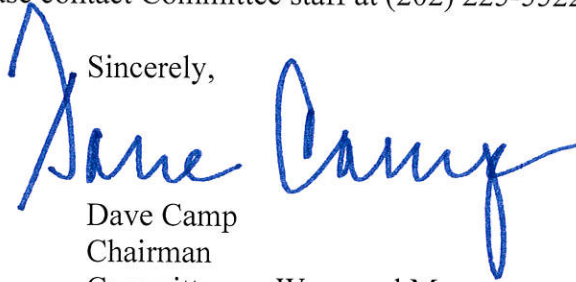 contact Committee staff at (202) 225-5522
Sincerely,
Dave Camp
Dave Camp
Chairman